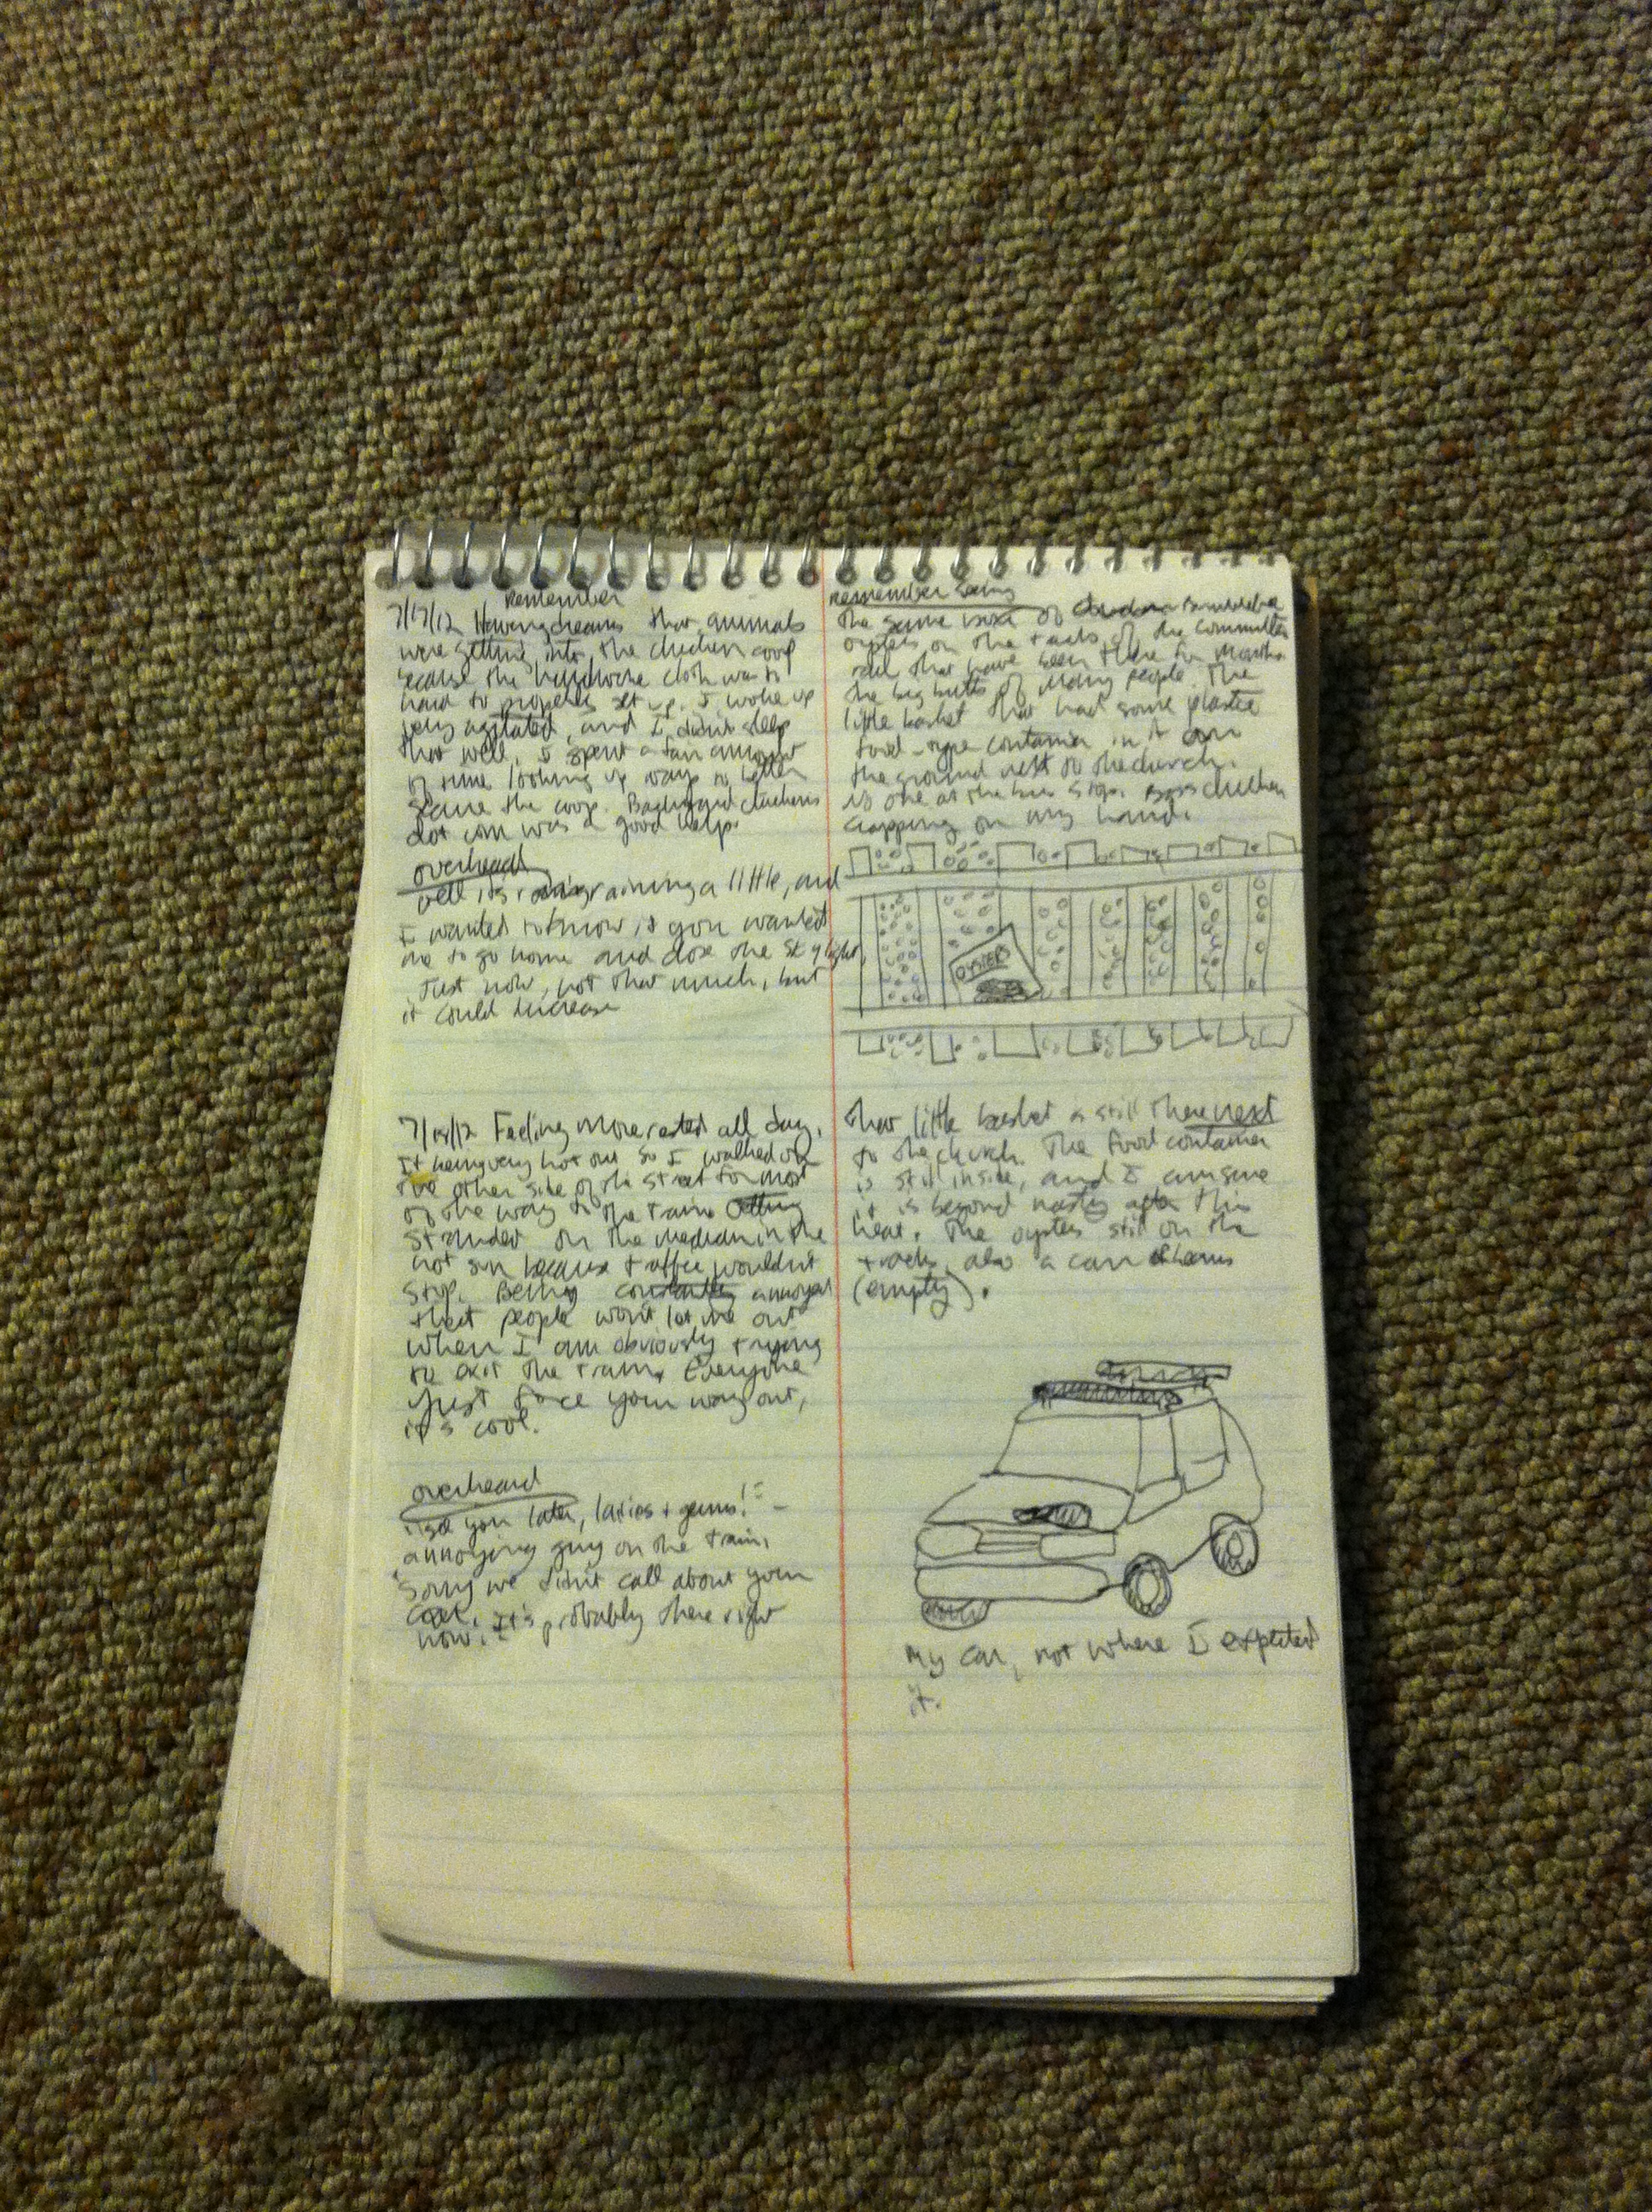 Remember
7/17/12 Having dreams that animals
were getting into the chicken coop
because the hardware cloth was so
hard to properly set up. I woke up
very agitated, and I didn't sleep
that well, I spent a fair amount
of time looking up ways to better
secure the coop. Backyard chickens
dot com was a good help.
overheard
well its raining a little, and
I wanted to know if you wanted
me to go home and close the skylight,
Just now, not that much, but
it could increase
7/18/12 Feeling more rested all day.
It being very hot out so I walked on
the other side of the street for most
of the way to the train. Getting
stranded on the median in the
hot sun because traffic wouldn't
stop. Being constantly annoyed
that people won't let me out
when I am obviously trying
to exit the train. Everyone
just force your way out,
it's cool.
overheard
"see you later, ladies + gems!" -
annoying guy on the train.
"Sorry we didn't call about your
It's probably there right
now."
Remember Seeing
the same box of
oysters on the tracks of the commuter
rail that have been there for months
the big butts of many people. The
little basket that had some plastic
food-type container in it on
the ground next to the church.
is one at the bus stop. chicken
crapping on my hand.
OYSTERS
That little basket is still there next
to the church. The food container
is still inside, and I am sure
it is beyond nasty after this
heat. The oysters still on the
tracks, also a can
(empty).
My car, not where I expected
it.